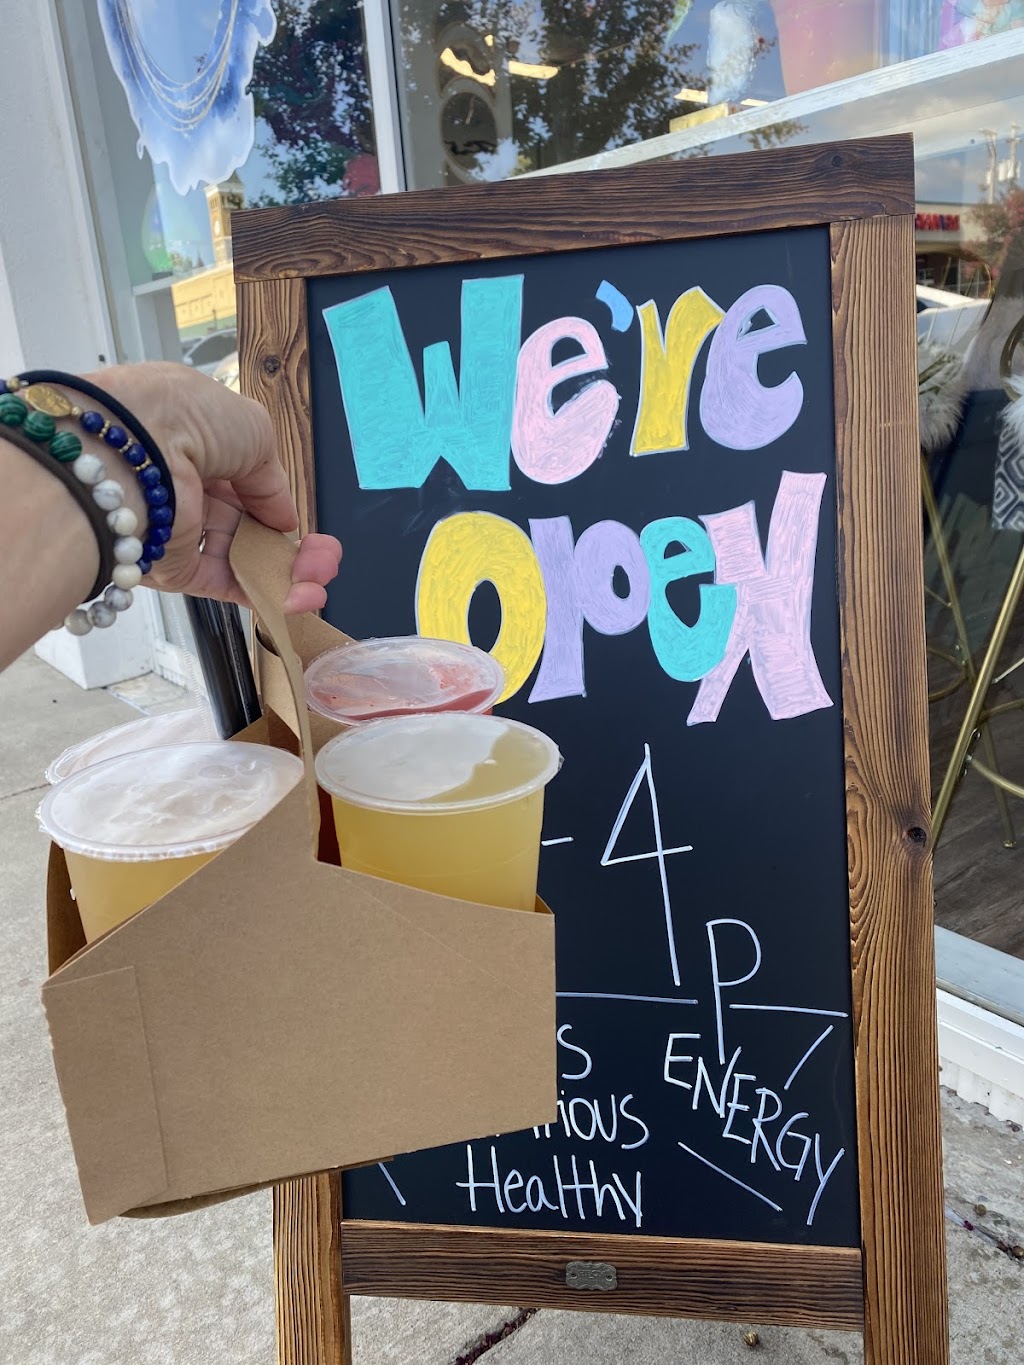 We're
open
- 4P
ENERGY
Healthy